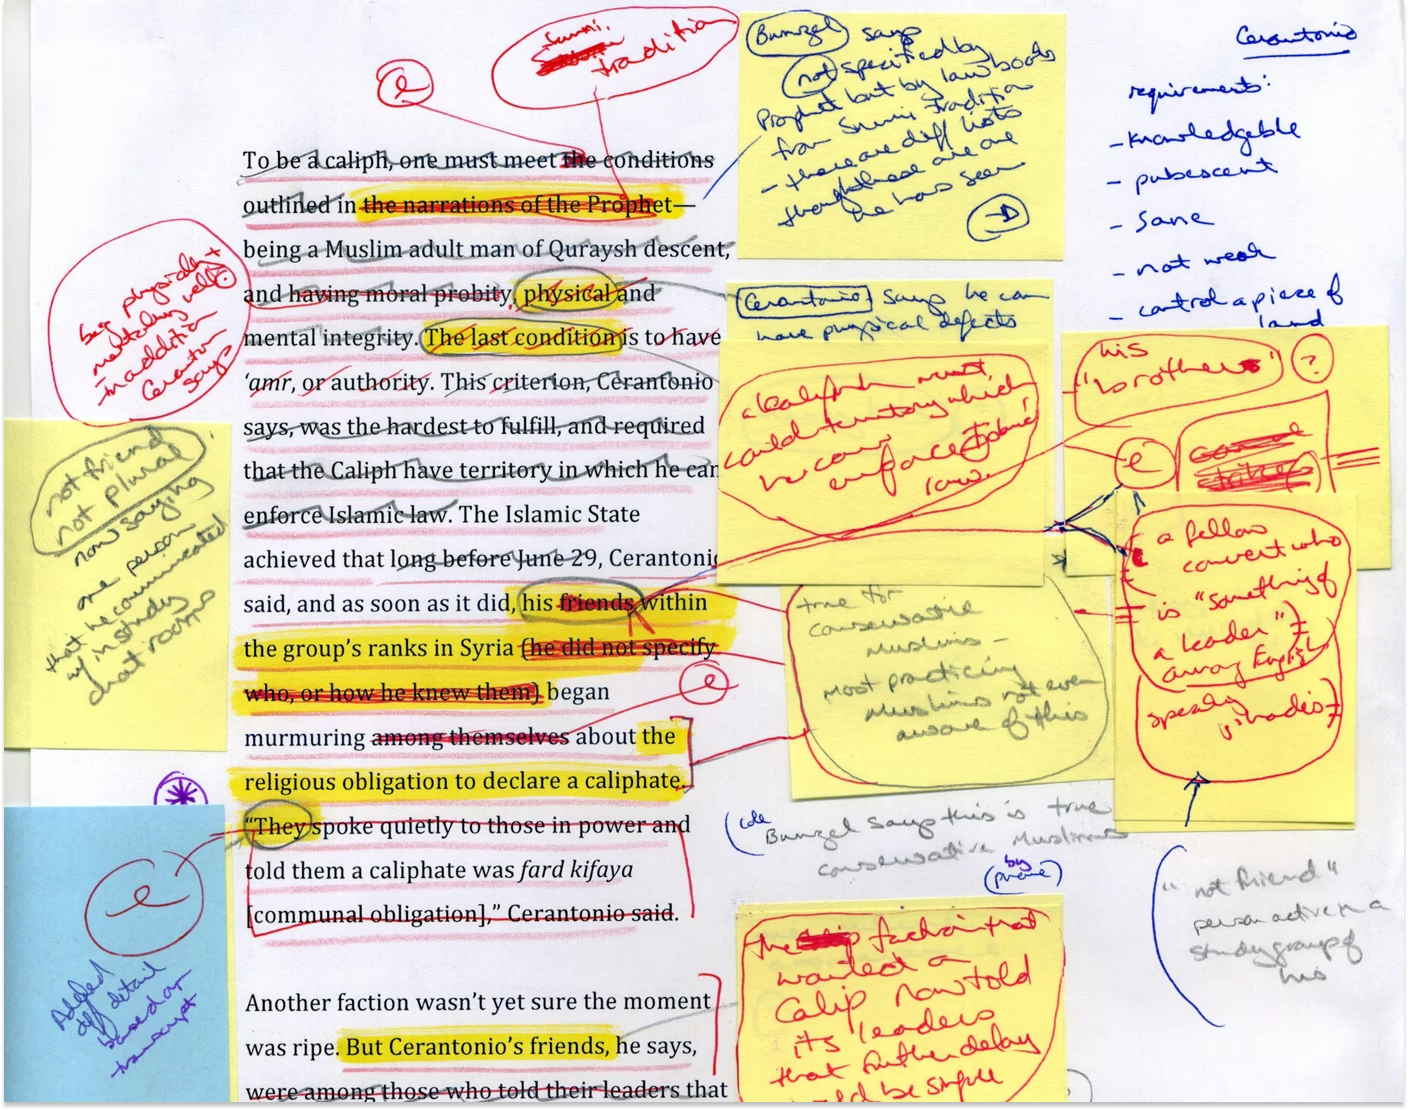 e
Sunni
tradition
Bunzel says
not specified by
Prophet but by law books
from Sunni tradition
- there are diff lists
though these are one
he has seen
Cerantonio
requirements:
- knowledgeable
- pubescent
- sane
- not weak
- control a piece of
land
To be a caliph, one must meet the conditions
outlined in the narrations of the Prophet—
being a Muslim adult man of Quraysh descent,
and having moral probity, physical and
mental integrity. The last condition is to have
‘amr, or authority. This criterion, Cerantonio
says, was the hardest to fulfill, and required
that the Caliph have territory in which he can
enforce Islamic law. The Islamic State
achieved that long before June 29, Cerantonio
said, and as soon as it did, his friends within
the group’s ranks in Syria (he did not specify
who, or how he knew them) began
murmuring among themselves about the
religious obligation to declare a caliphate.
“They spoke quietly to those in power and
told them a caliphate was fard kifaya
[communal obligation],” Cerantonio said.
Another faction wasn’t yet sure the moment
was ripe. But Cerantonio’s friends, he says,
were among those who told their leaders that
physically +
mentally well
in addition
Cerantonio
says
not friend
not plural
now saying
one person
that he communicated
w/ in study
chat rooms
e
Added
diff detail
based on
transcript
Cerantonio says he can
have physical defects
a caliph must
hold territory which
he can enforce Islamic
law.
his
"brother"
?
e
a fellow
convert who
is "something of
a leader"
among English
speaking
true for
conservative
Muslims -
Most practicing
Muslims not even
aware of this
e
Bunzel says this is true
conservative Muslims
by
(phone)
"not friend"
person active in a
study group of
his
the faction that
wanted a
Calip now told
its leaders
that further delay
would be simple